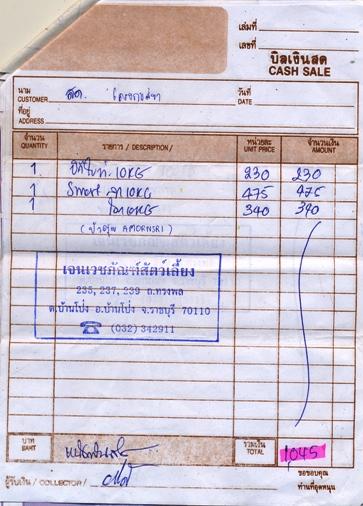 เล่มที่
เลขที่
บิลเงินสด
CASH SALE
นาม
CUSTOMER
สด.
วันที่
DATE
ที่อยู่
ADDRESS
จำนวน QUANTITY รายการ / DESCRIPTION / หน่วยละ UNIT PRICE จำนวนเงิน AMOUNT
1. 10KG 230 230
1 Smart 10KG 475 475
1 10KG 340 340
AMORNSRI )
เจนเวชภัณฑ์สัตว์เลี้ยง
235, 237, 239 ถ.ทรงพล
ต.บ้านโป่ง อ.บ้านโป่ง จ.ราชบุรี 70110
☎ (032) 342911
บาท
BAHT
รวมเงิน
TOTAL
1,045
ผู้รับเงิน / COLLECTOR /
ขอขอบคุณ
ท่านที่อุดหนุน